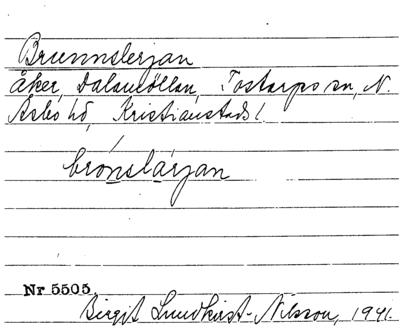 Brunnslerjan
åker, Dalamöllan, Tostarps sn, N.
Åsbo hd, Kristianstads l.
brónslárjan
Nr 5505
Birgit Lundkvist-Nilsson, 1941.